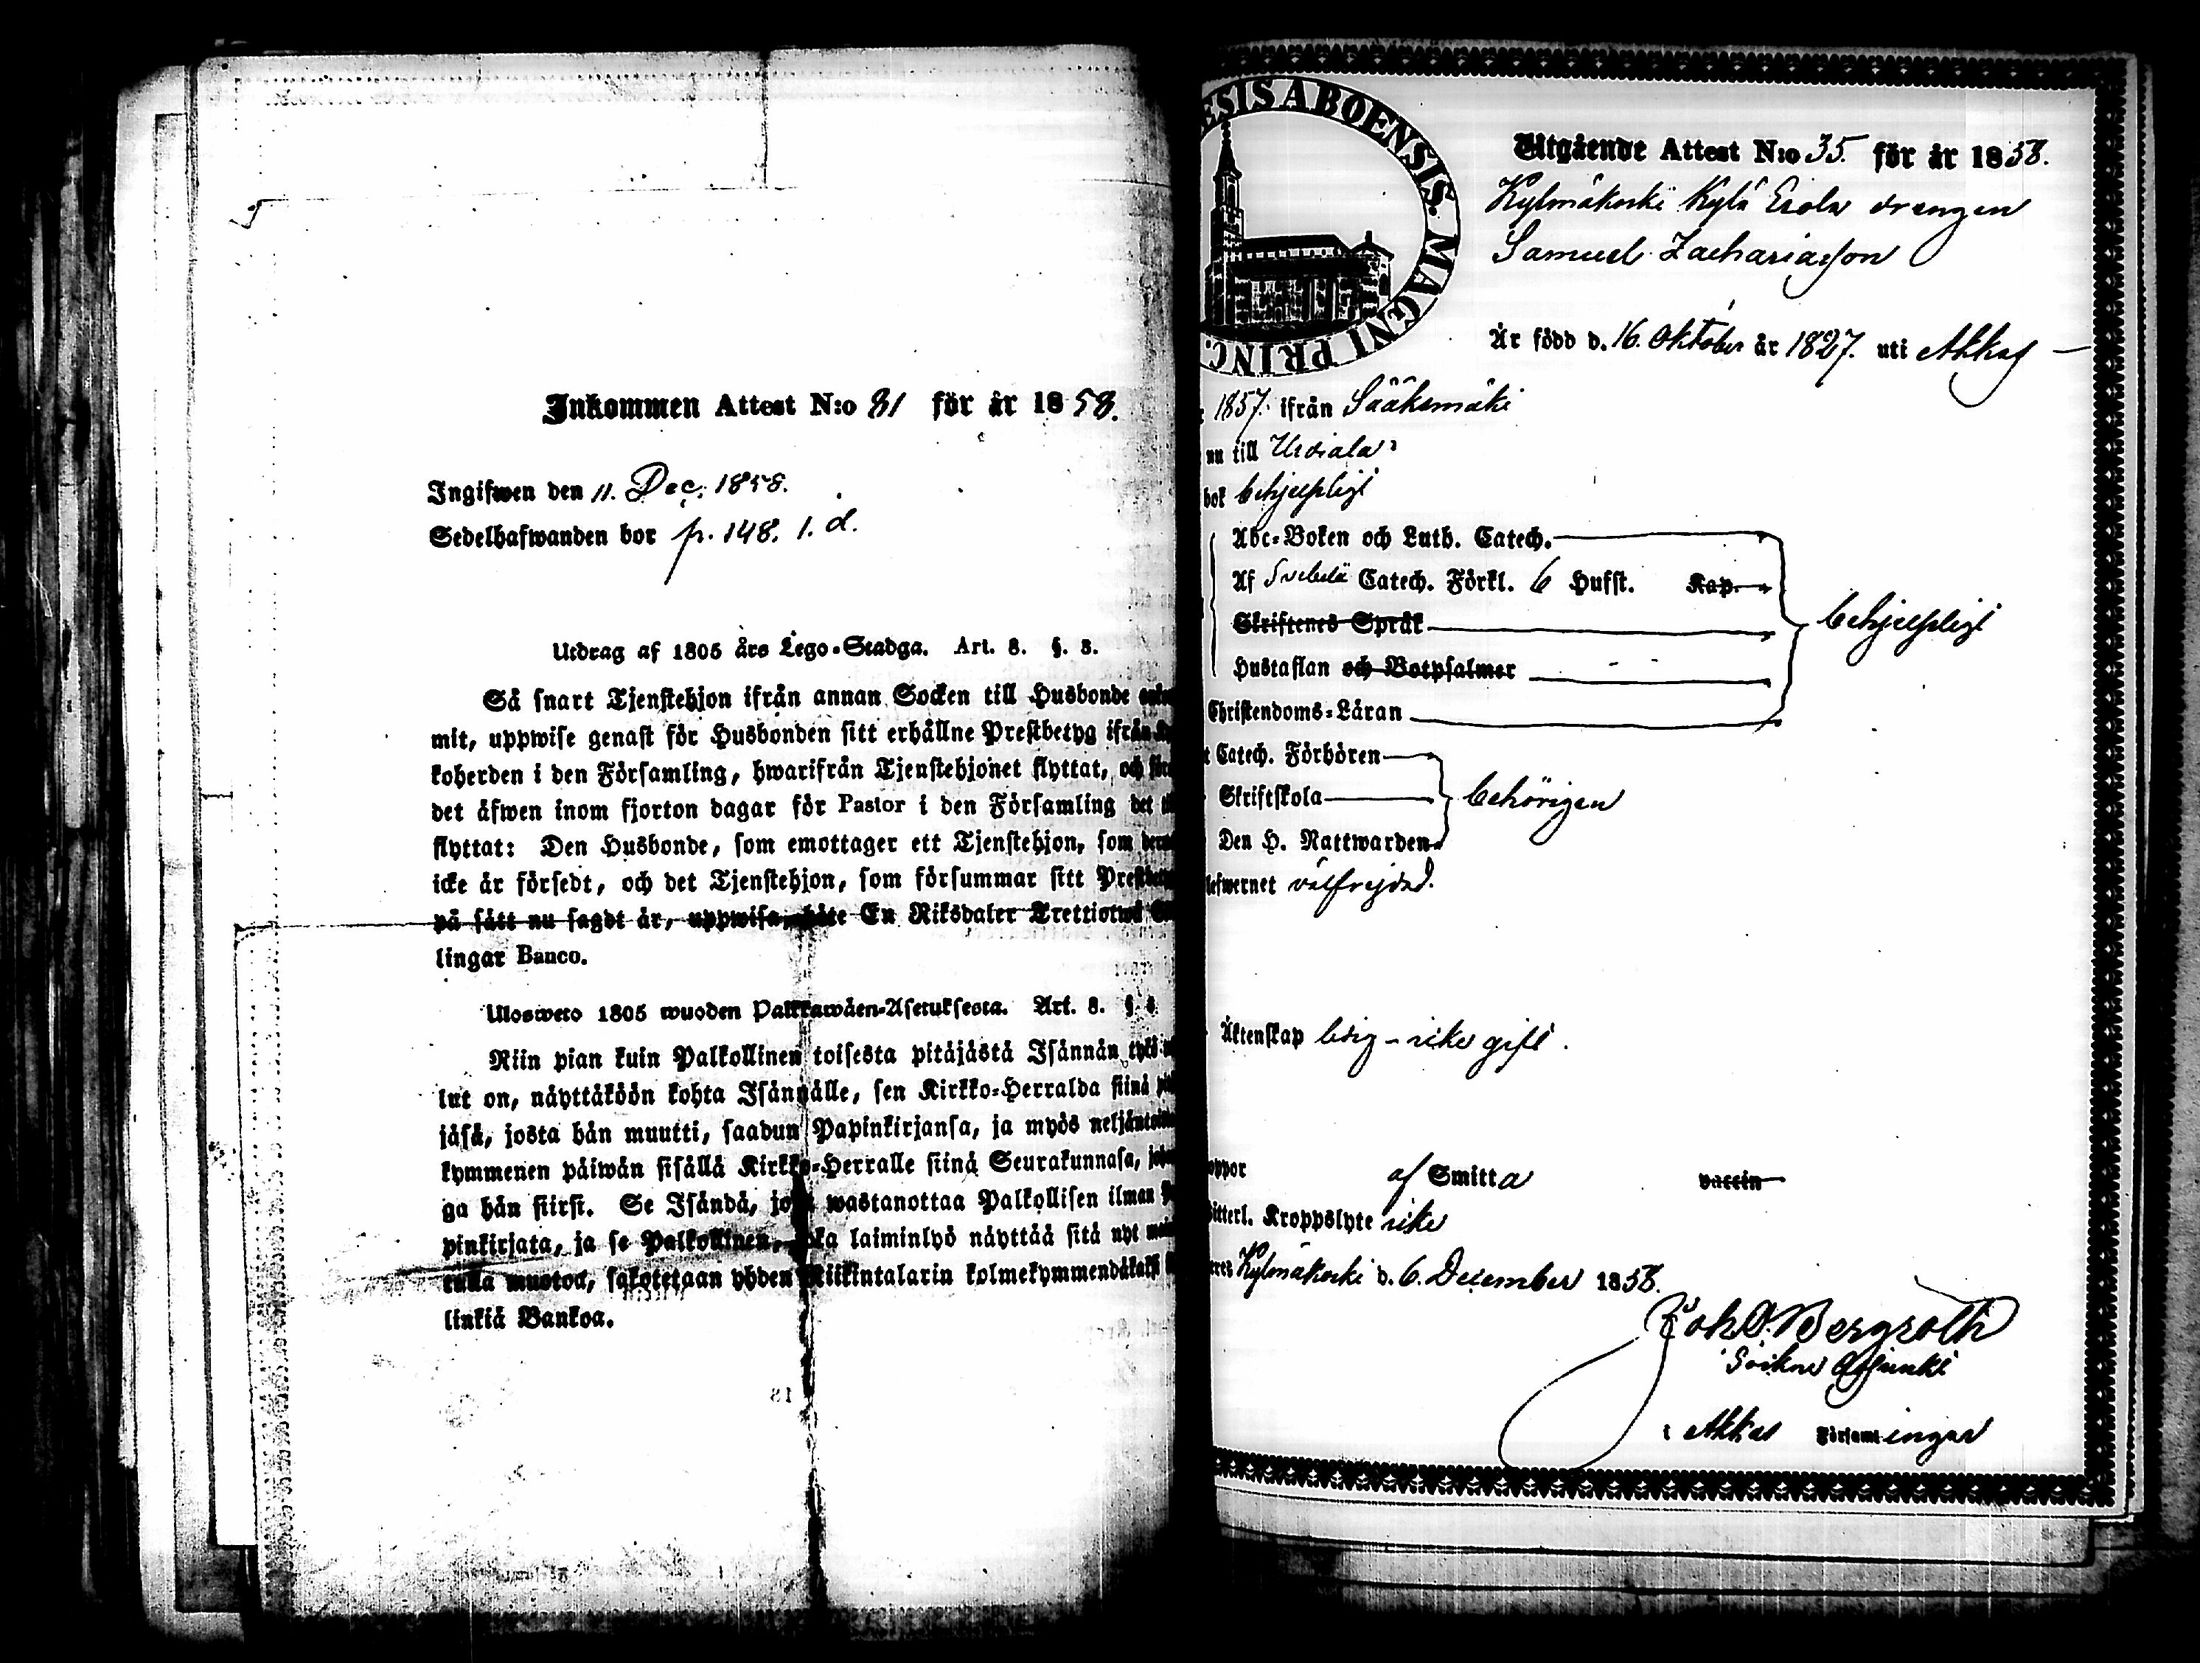 Inkommen Attest N:o 81 för år 1858.
Ingifwen den 11. Dec. 1858.
Sedelhafwanden bor p. 148. 1. d.
Utdrag af 1805 års Lego-Stadga. Art. 8. §. 3.
Så snart Tjenstehjon ifrån annan Socken till Husbonde
mit, uppwise genast för Husbonden sitt erhållne Prestbetyg ifrån
koherden i den Församling, hwarifrån Tjenstehjonet flyttat, och
det äfwen inom fjorton dagar för Pastor i den Församling det
flyttat: Den Husbonde, som emottager ett Tjenstehjon, som
icke är försedt, och det Tjenstehjon, som försummar sitt
på sätt nu sagdt är, uppwisa, böte En Riksdaler Trettiotwå
lingar Banco.
Ulosweto 1805 wuoden Palkkawäen-Asetuksesta. Art. 8. §.
Niin pian kuin Palkollinen toisesta pitäjästä Isännän tykö
lut on, näyttäköön kohta Isännälle, sen Kirkko-Herralda siinä
jäsä, josta hän muutti, saadun Papinkirjansa, ja myös
kymmenen päiwän sisällä Kirkko-Herralle siinä Seurakunnasa,
ga hän siirsi. Se Isändä, joka wastanottaa Palkollisen ilman
pinkirjata, ja se Palkollinen, joka laiminlyö näyttää sitä nyt
tulla muotod, sakotetaan yhden Riikintalarin kolmekymmendäkaksi
linkiä Bankoa.
ESIS ABOENSIS. MAGNI PRINC.
Utgående Attest N:o 35. för år 1858.
Kylmäkoski Kylä Erola drengen
Samuel Zachariasson
Är född d. 16. Oktober år 1827. uti Akkas
1857. ifrån Sääksmäki
nu till Urdiala
bok behjelpligt
Abc-Boken och Luth. Catech.
Af Svebelii Catech. Förkl. 6 Hufst. Kap.
Skriftenes Språk
behjelpligt
Hustaflan och Botpsalmer
Christendoms-Läran
Catech. Förhören
Skriftskola
behörigen
Den H. Nattwarden
lefwernet välfrejdad.
Äktenskap ledig - icke gift.
oppor af Smitta vaccin
itterl. Kroppslyte icke
Kylmäkoski d. 6. December 1858.
Joh. O. Bergroth
Sockne Adjunkt
i Akkas Församlingar